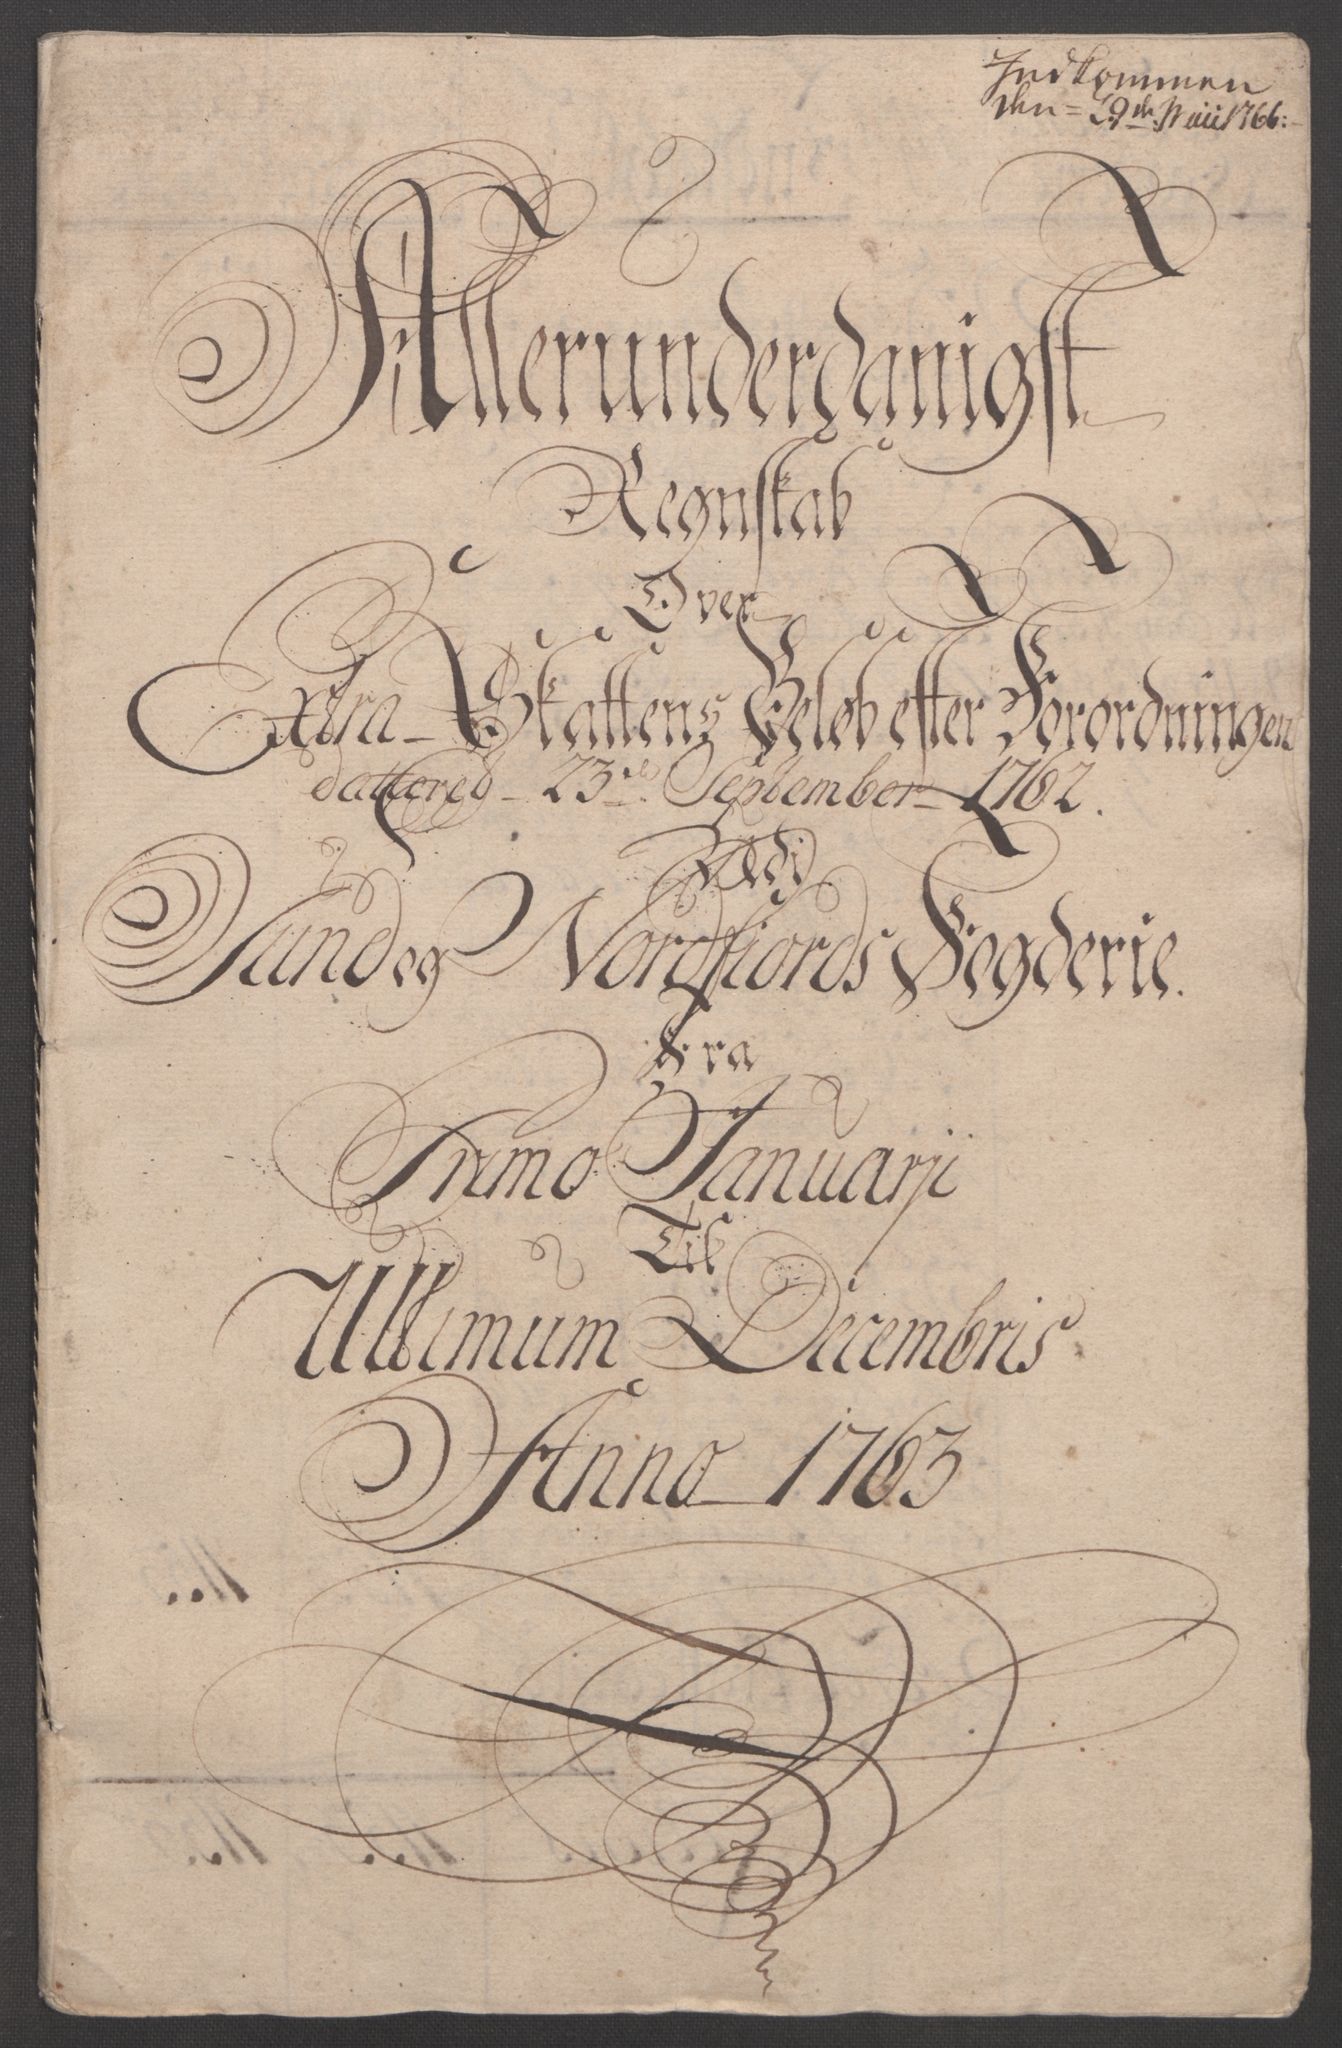 Indkommen
den = 29de Maii 1766:
Allerunderdanigst
Regnskab
Over
Extra Skattens Beløb efter Forordningen
dattered 23de September 1762.
Udi
Sund og Nordfiords Fogderie.
Fra
Primo Januarji
Til
Ultimum Decembris
Anno 1763